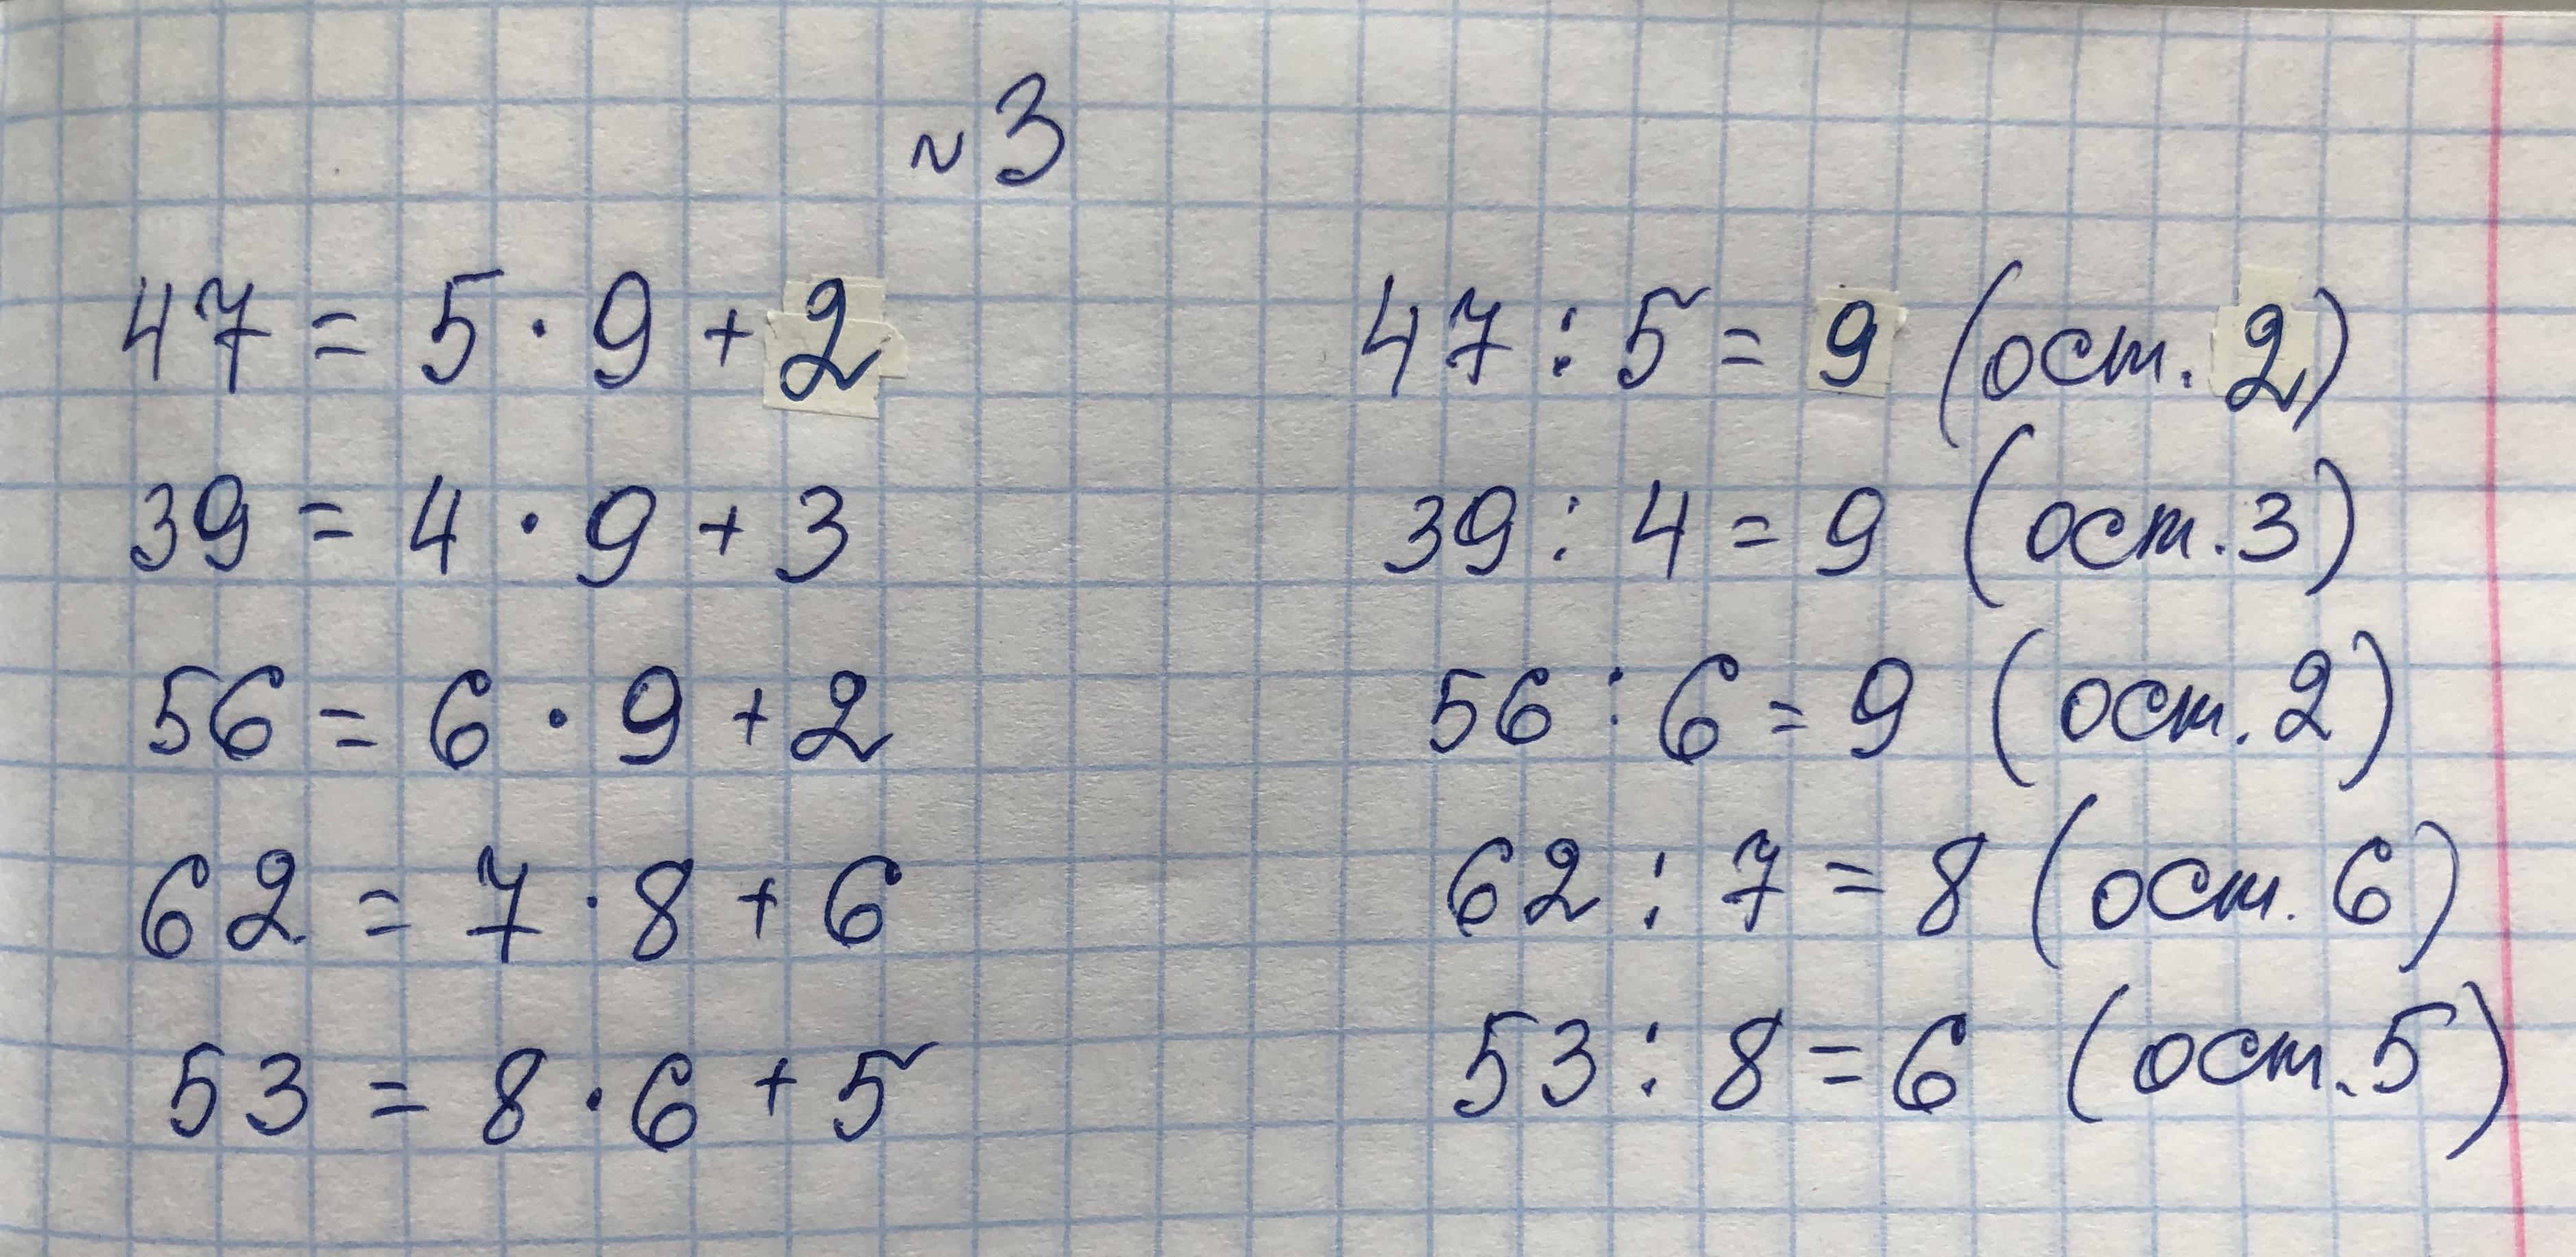 №3
47 = 5 · 9 + 2 47 : 5 = 9 (ост. 2)
39 = 4 · 9 + 3 39 : 4 = 9 (ост. 3)
56 = 6 · 9 + 2 56 : 6 = 9 (ост. 2)
62 = 7 · 8 + 6 62 : 7 = 8 (ост. 6)
53 = 8 · 6 + 5 53 : 8 = 6 (ост. 5)